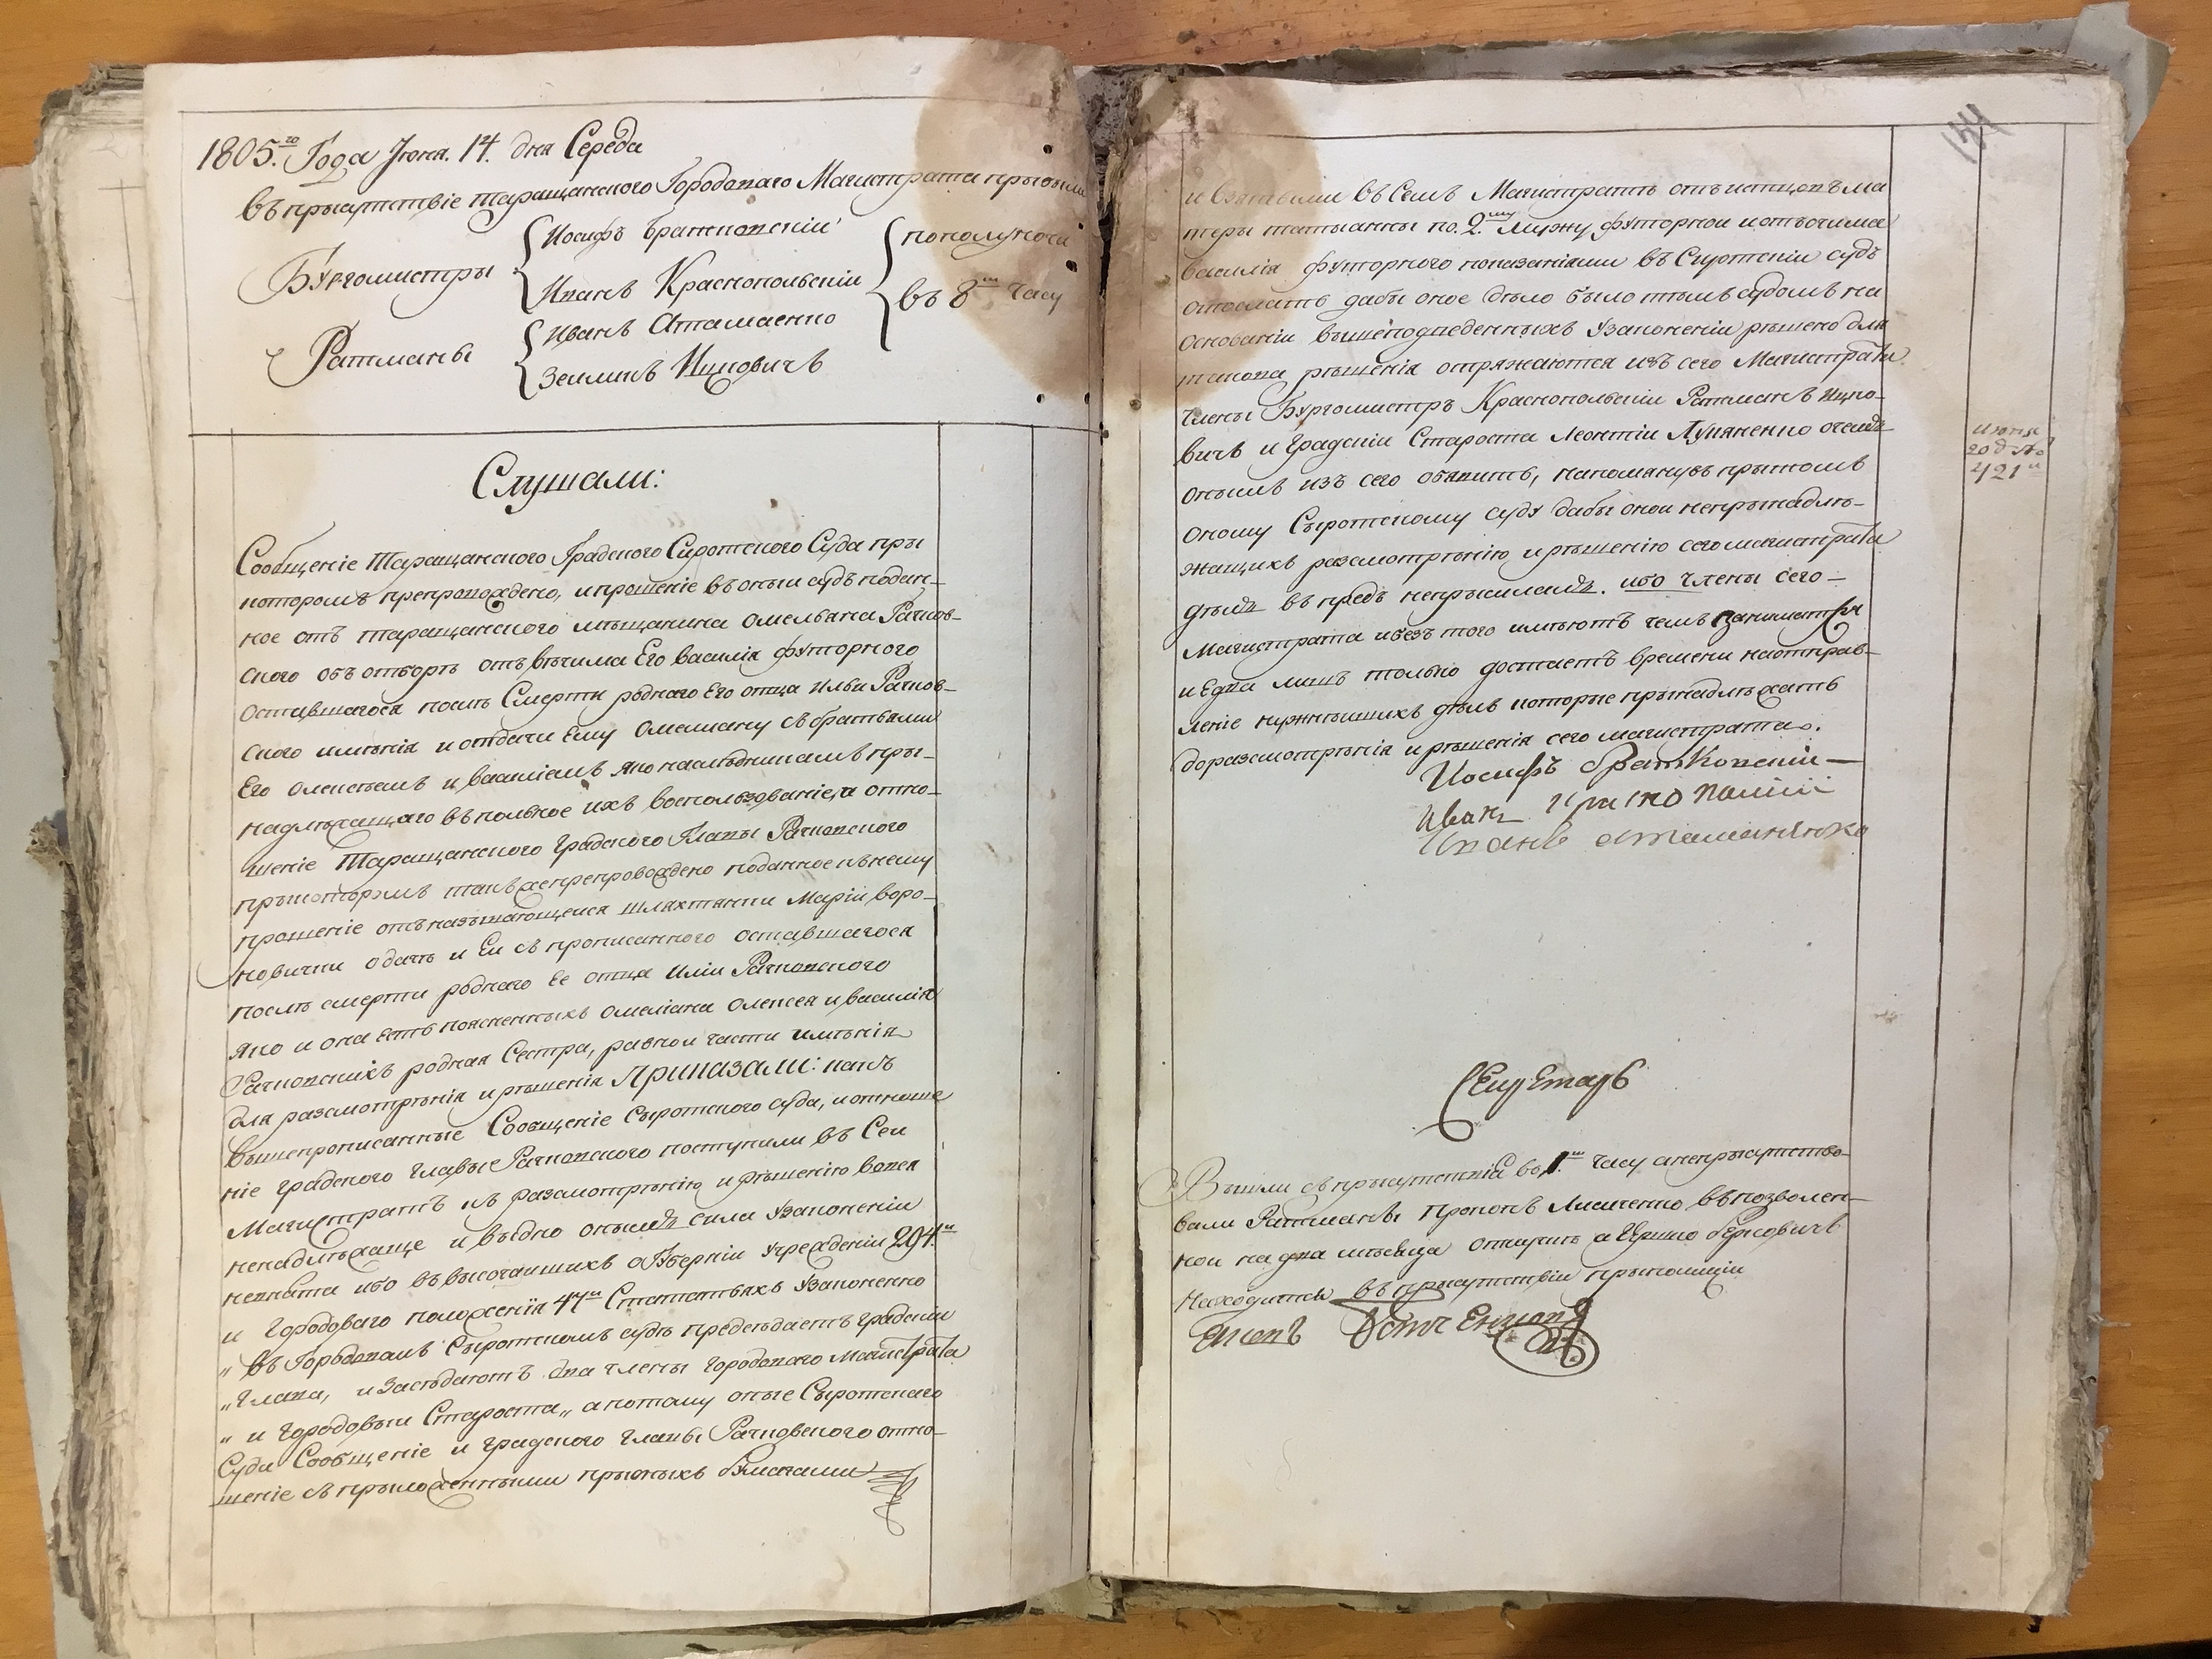 1805.го Года Июня. 14. дня Середа
въ присутствіе Таращанского Городоваго Магистрата прибыли
Бургомистры
Иосифъ Братковскій
Иванъ Краснопольскій
Ратманы
Иванъ Атамаенко
Зелманъ Ицковичъ
пополуночи
въ 8м часу
Слушали:
Сообщеніе Таращанского Градского Сиротского Суда при
которомъ препровождено, и прошеніе въ оный судъ подан-
ное отъ таращанского мещанина Омельяна Рачков-
ского объ отборѣ отъ вѣтчима Его Василія Футорного
оставшагося послѣ Смерти роднаго Его отца Ильи Рачков-
ского имѣнія и отдачи Ему Омелиану съ братьями
Его Олексѣемъ и Василіемъ яко наслѣдникамъ при-
надлѣжащаго въ полное ихъ воспользованіе, и отно-
шеніе Таращанского Градского Главы Рачковского
прикоторомъ такъ же препровождено поданное къ нему
прошеніе отъ называющейся шляхтянки Маріи Воро-
новички о дачѣ и Ей съ прописанного оставшагося
послѣ смерти роднаго Ее отца Иліи Рачковского
яко и она есть поясненныхъ Омеліана Олексея и Василія
Рачковскихъ родная Сестра, равной части имѣнія
для разсмотрѣнія и рѣшенія Приказали: какъ
вышепрописанные Сообщеніе Сыротского суда, и отноше
ніе градского главы Рачковского поступили въ Сей
Магистратъ къ разсмотрѣнію и рѣшенію вовся
ненадлѣжаще и вѣдно онымъ сила Узаконеній
непонята ибо въ высочайшихъ о Губерніи Учрежденіи 294.й
и Городоваго положенія 47й Статьяхъ Узаконенно
„ въ Городовомъ Сыротскомъ судѣ предсѣдаетъ градскій
„ глава, и Засѣдаютъ два члены городоваго Магистрата
„ и городовый Староста„ а потому оные Сыротского
Суда Сообщеніе и градского главы Рачковского отно-
шеніе съ приложенными при оныхъ бумагами
и взятыми въ Семъ Магистратѣ отъ истцовъ ма
тери татьянны по 2.му мужу футорной и отъ отчима
Василія футорного показаніями въ Сиротскій судъ
отослать дабы оное дѣло было тѣмъ судомъ на
основаніи вышеподведенныхъ узаконеній рѣшено для
такова рѣшенія отряжаются изъ сего Магистрата
члены Бургомистръ Краснопольскій Ратманъ Ицко-
вичъ и Градскій Староста Леонтій Лукяненко о чемъ
онымъ изъ сего объявить, напомянувъ притомъ
оному Сыротскому суду дабы оной непринадлѣ-
жащихъ разсмотрѣнію и рѣшенію сего магистрата
дѣлъ въ предъ неприсилалъ. ибо члены сего-
Магистрата и безъ того имѣютъ чемъ заниматся
и Едва лишъ только достаетъ времени на отправ-
леніе нужнѣйшихъ дѣлъ которые принадлѣжатъ
до разсмотрѣнія и рѣшенія сего магистрата.
Июня
20 д №
421й
Иосифъ Братковскій
Иванъ
Иванъ Атаманенко
Секретарь
Вышли съ присутствія во 1.м часу а неприсутство-
вали Ратманы Прокопъ Лисиченко въ позволен-
ной на два мѣсяца отлучкѣ а Гершко Берковичъ
Находится въ присутствіи приполиціи